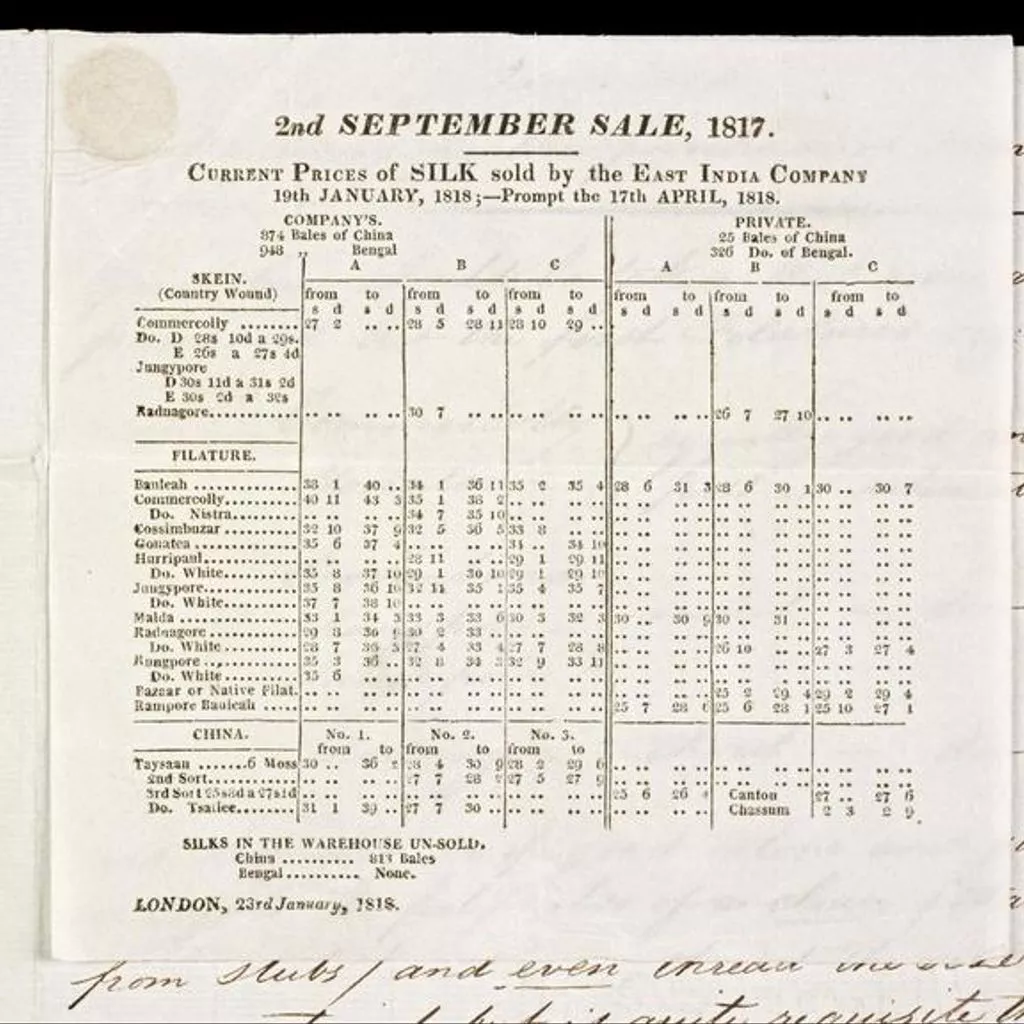 2nd SEPTEMBER SALE, 1817.
CURRENT PRICES of SILK sold by the EAST INDIA COMPANY
19th JANUARY, 1818;—Prompt the 17th APRIL, 1818.
COMPANY'S. PRIVATE.
874 Bales of China 25 Bales of China
948 „ Bengal 326 Do. of Bengal.
A B C A B C
SKEIN.
(Country Wound) from to from to from to from to from to from to
s d s d s d s d s d s d s d s d s d s d s d s d
Commercolly ........ 27 2 .. .. 28 5 28 11 28 10 29 ..
Do. D 28s 10d a 29s.
E 26s a 27s 4d
Jungypore
D 30s 11d a 31s 2d
E 30s 2d a 32s
Radnagore............ .. .. .. .. 30 7 .. .. .. .. .. .. .. .. .. .. 26 7 27 10 .. .. .. ..
FILATURE.
Bauleah ............. 38 1 40 .. 34 1 36 11 35 2 35 4 28 6 31 3 28 6 30 1 30 .. 30 7
Commercolly.......... 40 11 43 3 35 1 38 2 .. .. .. .. .. .. .. .. .. .. .. .. .. .. .. ..
Do. Nistra......... .. .. .. .. 34 7 35 10 .. .. .. .. .. .. .. .. .. .. .. .. .. .. .. ..
Cossimbuzar ......... 32 10 37 9 32 5 36 5 33 8 .. .. .. .. .. .. .. .. .. .. .. .. .. ..
Gonatea ............. 35 6 37 4 .. .. .. .. 34 .. 34 10 .. .. .. .. .. .. .. .. .. .. .. ..
Hurripaul............ .. .. .. .. 28 11 .. .. 29 1 29 11 .. .. .. .. .. .. .. .. .. .. .. ..
Do. White.......... 35 8 37 10 29 1 30 10 29 1 29 10 .. .. .. .. .. .. .. .. .. .. .. ..
Jungypore............ 35 8 36 10 32 11 35 1 35 4 35 7 .. .. .. .. .. .. .. .. .. .. .. ..
Do. White.......... 37 7 38 10 .. .. .. .. .. .. .. .. .. .. .. .. .. .. .. .. .. .. .. ..
Malda ............... 33 1 34 3 33 3 33 6 30 3 32 3 30 .. 30 9 30 .. 31 .. .. .. .. ..
Radnagore ........... 29 8 36 30 2 33 .. .. .. .. .. .. .. .. .. .. .. .. .. .. .. .. ..
Do. White.......... 28 7 36 5 27 4 33 4 27 7 28 8 .. .. .. .. 26 10 .. .. 27 3 27 4
Rungpore ..., ....... 35 3 36 .. 32 8 34 3 32 9 33 11 .. .. .. .. .. .. .. .. .. .. .. ..
Do. White.......... 35 6 .. .. .. .. .. .. .. .. .. .. .. .. .. .. .. .. .. .. .. .. .. ..
Bazaar or Native Filat. .. .. .. .. .. .. .. .. .. .. .. .. .. .. .. .. 25 2 29 4 29 2 29 4
Rampore Bauleah ..... .. .. .. .. .. .. .. .. .. .. .. .. 25 7 28 6 25 6 28 1 25 10 27 1
CHINA. No. 1. No. 2. No. 3.
from to from to from to
Taysaan .......6 Moss 30 .. 36 2 28 4 30 9 28 2 29 6 .. .. .. .. .. .. .. ..
2nd Sort............ .. .. .. .. 27 7 28 2 27 5 27 9 .. .. .. .. .. .. .. ..
3rd Sort 25s8d a 27s1d .. .. .. .. .. .. .. .. .. .. .. .. 25 6 26 4 Canton 27 .. 27 6
Do. Tsatlee......... 31 1 39 .. 27 7 30 .. .. .. .. .. .. .. .. .. Chassum 2 3 2 9
SILKS IN THE WAREHOUSE UN-SOLD.
China .......... 813 Bales
Bengal .......... None.
LONDON, 23rd January, 1818.
from stubs / and even
it is quite requisite